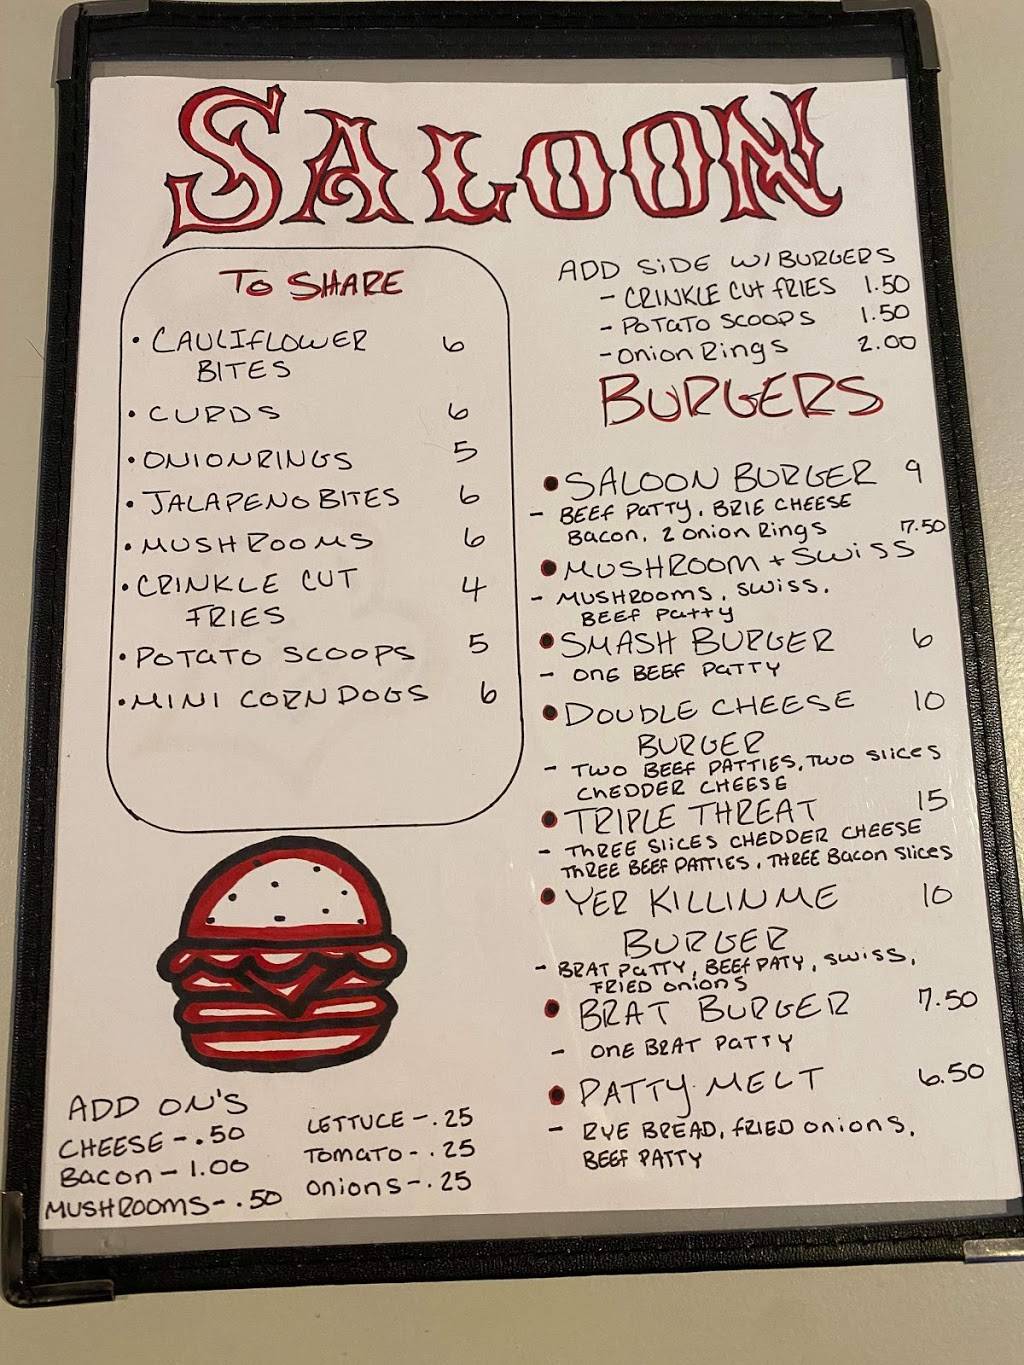 SALOON
TO SHARE
• CAULIFLOWER 6
BITES
• CURDS 6
• ONIONRINGS 5
• JALAPENO BITES 6
• MUSHROOMS 6
• CRINKLE CUT 4
FRIES
• POTATO SCOOPS 5
• MINI CORNDOGS 6
ADD ON'S
CHEESE - .50
BACON - 1.00
MUSHROOMS - .50
LETTUCE - .25
TOMATO - .25
ONIONS - .25
ADD SIDE W/ BURGERS
- CRINKLE CUT FRIES 1.50
- POTATO SCOOPS 1.50
- ONION RINGS 2.00
BURGERS
• SALOON BURGER 9
- BEEF PATTY, BRIE CHEESE
BACON, 2 ONION RINGS
• MUSHROOM + SWISS 7.50
- MUSHROOMS, SWISS,
BEEF PATTY
• SMASH BURGER 6
- ONE BEEF PATTY
• DOUBLE CHEESE 10
BURGER
- TWO BEEF PATTIES, TWO SLICES
CHEDDER CHEESE
• TRIPLE THREAT 15
- THREE SLICES CHEDDER CHEESE
THREE BEEF PATTIES, THREE BACON SLICES
• YER KILLIN ME 10
BURGER
- BRAT PATTY, BEEF PATY, SWISS,
FRIED ONIONS
• BRAT BURGER 7.50
- ONE BRAT PATTY
• PATTY MELT 6.50
- RYE BREAD, FRIED ONIONS,
BEEF PATTY